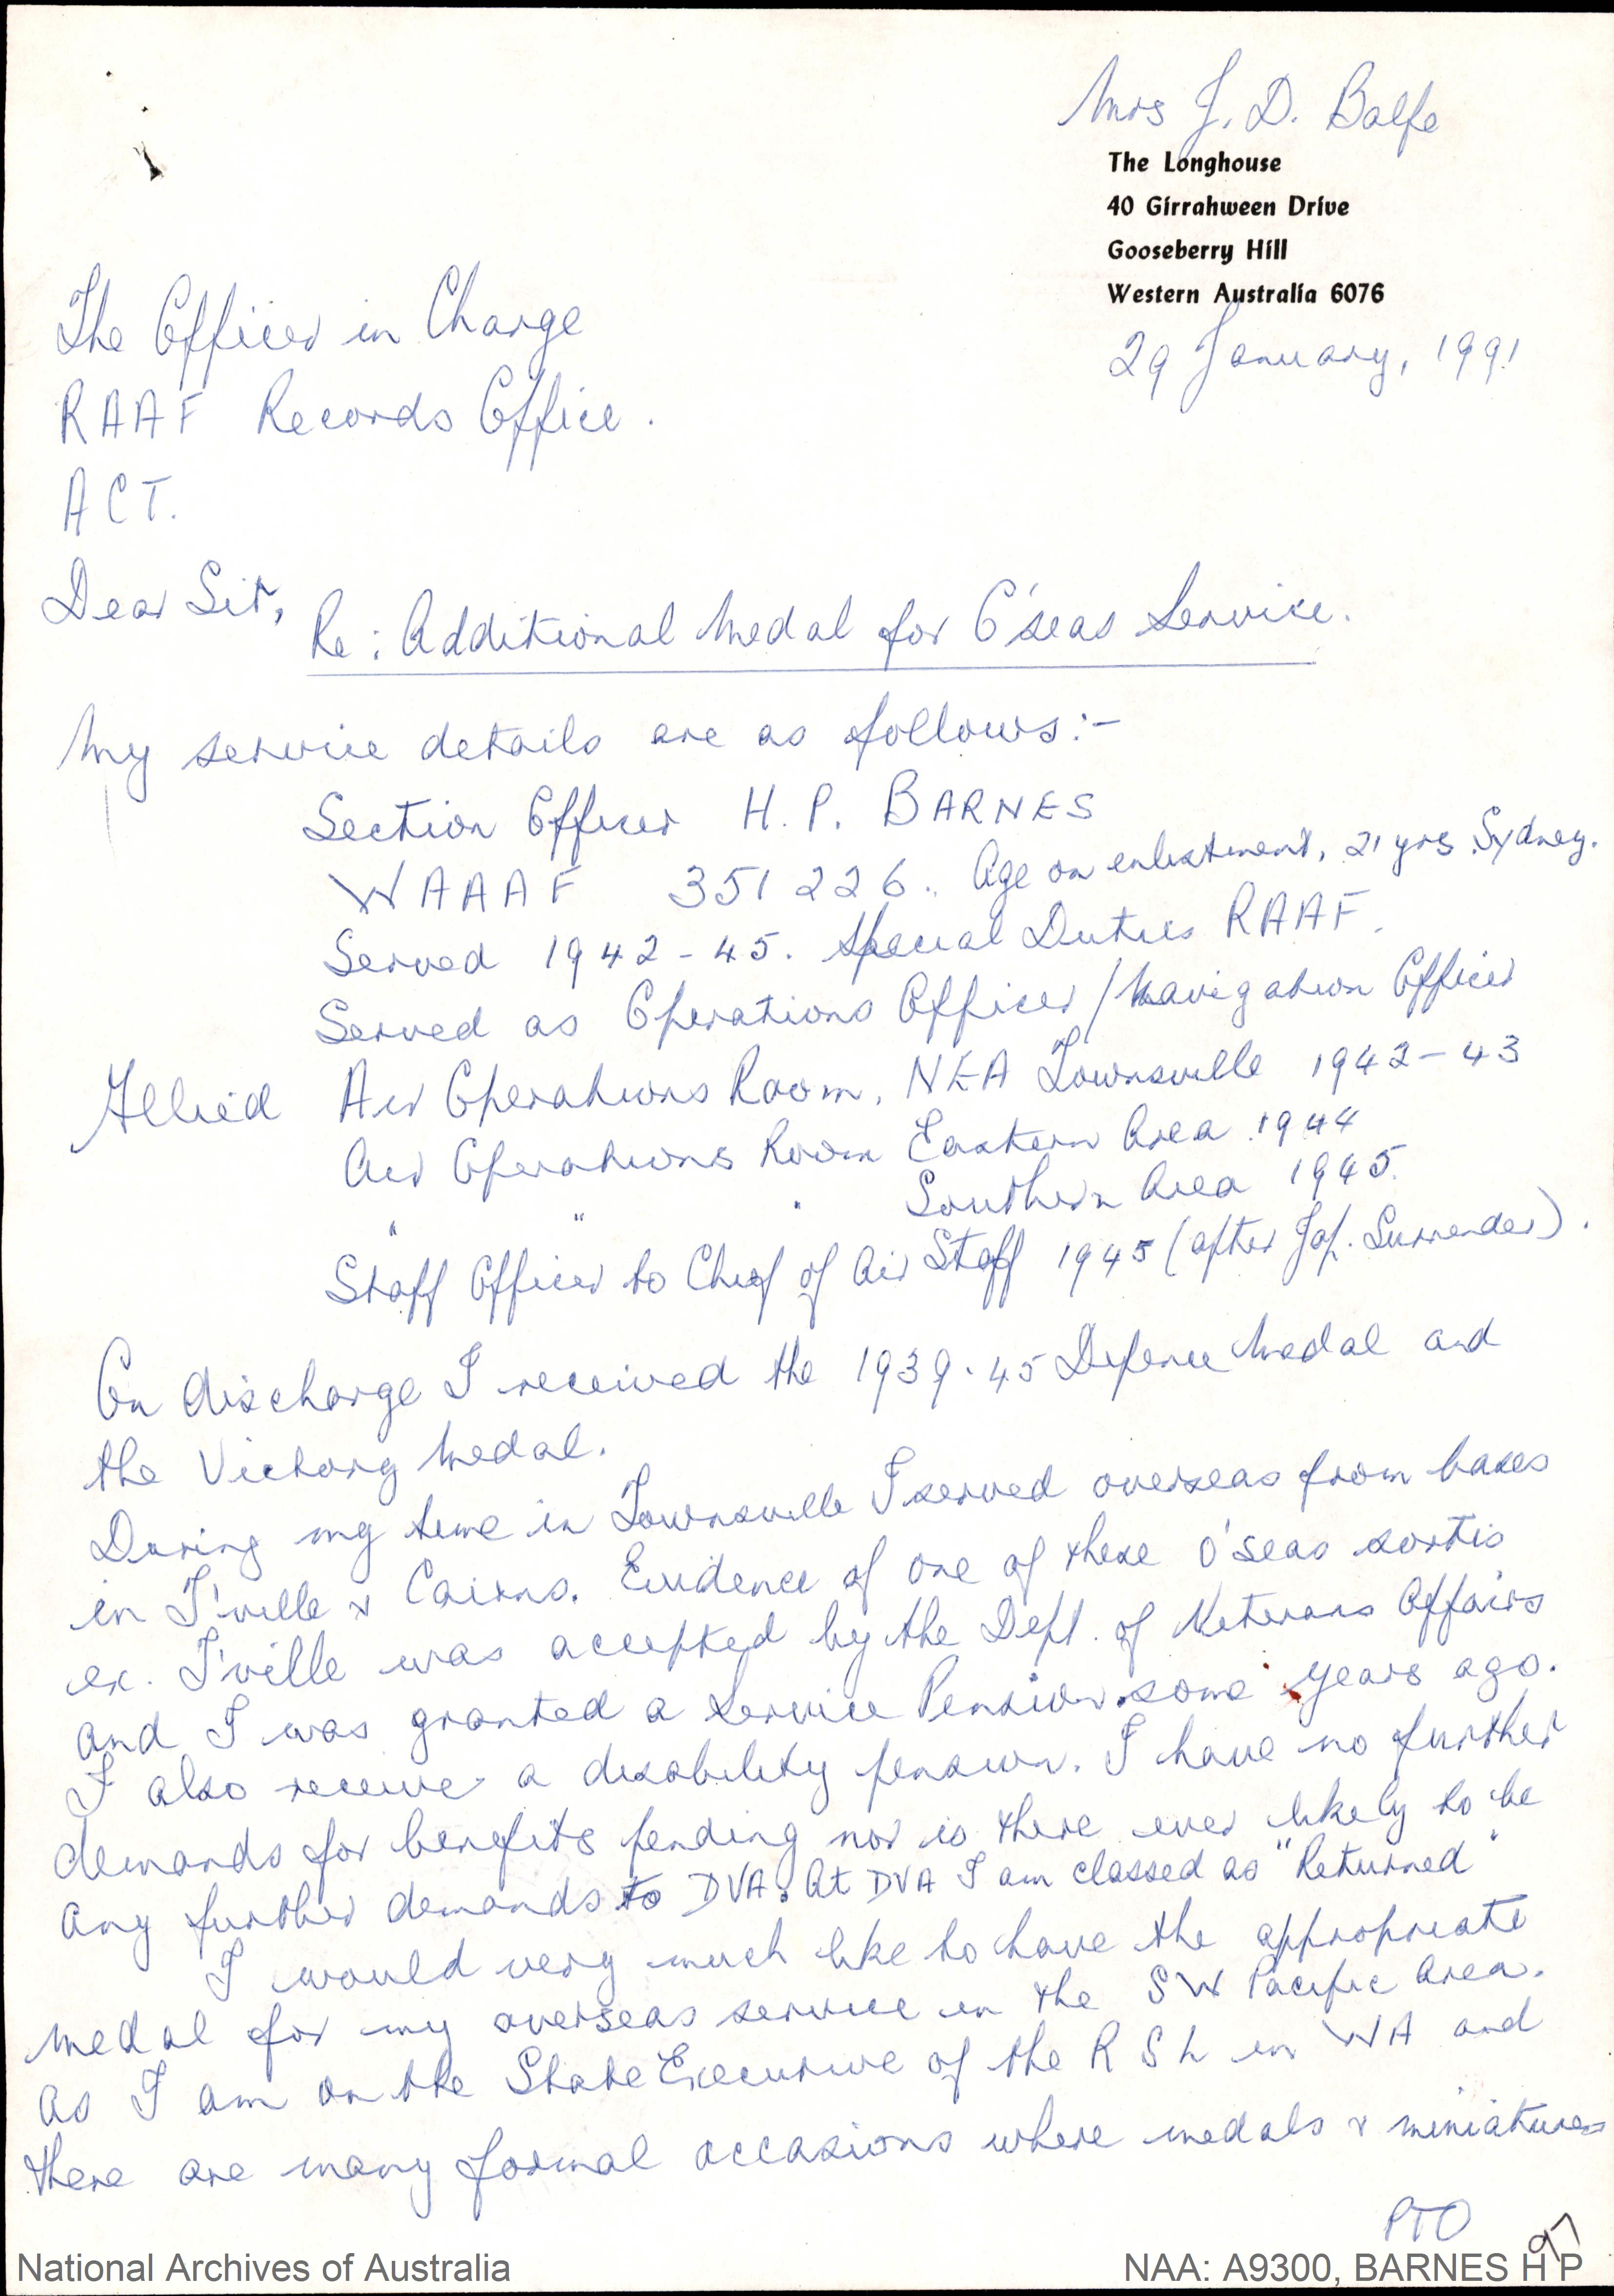 Mrs J. D. Balfe
The Longhouse
40 Girrahween Drive
Gooseberry Hill
Western Australia 6076
29 January, 1991
The Officer in Charge
RAAF Records Office.
ACT.
Dear Sir,
Re: Additional Medal for O'seas Service.
My service details are as follows:-
Section Officer H. P. BARNES
WAAAF 351226. Age on enlistment, 21 yrs Sydney.
Served 1942-45. Special Duties RAAF.
Served as Operations Officer/Navigation Officer
Allied Air Operations Room, NEA Townsville 1942-43
Air Operations Room Eastern Area 1944
" " " Southern Area 1945.
Staff Officer to Chief of Air Staff 1945 (after Jap. Surrender).
On discharge I received the 1939-45 Defence Medal and
the Victory Medal.
During my time in Townsville I served overseas from bases
in T'ville & Cairns. Evidence of one of these O'seas sortis
ex. T'ville was accepted by the Dept. of Veterans Affairs
and I was granted a Service Pension some years ago.
I also receive a disability pension. I have no further
demands for benefits pending nor is there ever likely to be
any further demands to DVA. At DVA I am classed as "Returned"
I would very much like to have the appropriate
medal for my overseas service in the SW Pacific Area.
As I am on the State Executive of the RSL in WA and
there are many formal occasions where medals & miniatures
PTO
97
National Archives of Australia
NAA: A9300, BARNES H P